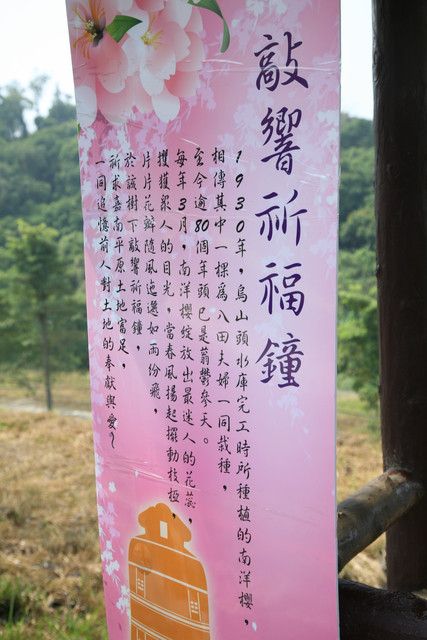 敲響祈福鐘
1930年，烏山頭水庫完工時所種植的南洋櫻，
相傳其中一棵為八田夫婦一同栽種，
至今逾80個年頭已是蓊鬱參天。
每年3月，南洋櫻綻放出最迷人的花蕊，
攫獲眾人的目光，當春風揚起擺動枝椏，
片片花瓣隨風迤邐如雨紛飛，
於該樹下敲響祈福鐘，
祈求嘉南平原土地富足，
一同追憶前人對土地的奉獻與愛～